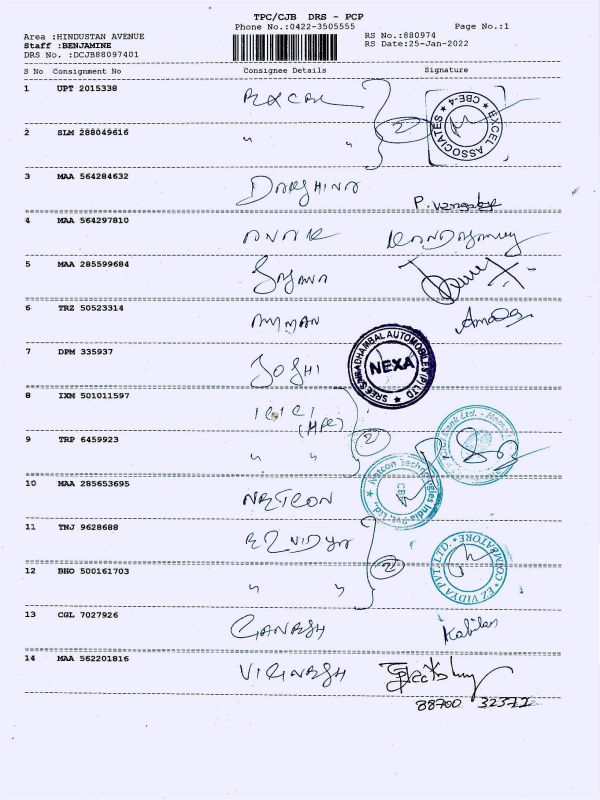 TPC/CJB DRS - PCP
Phone No.:0422-3505555 Page No.:1
Area :HINDUSTAN AVENUE RS No.:880974
Staff :BENJAMINE RS Date:25-Jan-2022
DRS No. :DCJB88097401
S No Consignment No Consignee Details Signature
1 UPT 2015338 EXCEL
EXCEL ASSOCIATES * CBE-4 *
2 SLM 288049616 " " 2
3 MAA 564284632 DARSHINA
4 MAA 564297810
5 MAA 285599684
6 TRZ 50523314 AMMAN
7 DPM 335937 JOSHI
NEXA
8 IXM 501011597 ICICI
9 TRP 6459923 " " 2
10 MAA 285653695 NETCON
Netcon Technologies India Pvt. Ltd.,
11 TNJ 9628688 EZ VIDYA
EZ VIDYA PVT. LTD. * COIMBATORE *
12 BHO 500161703 " " 2
13 CGL 7027926 GANESH Kabilan
14 MAA 562201816 VIGNESH
88700 32372